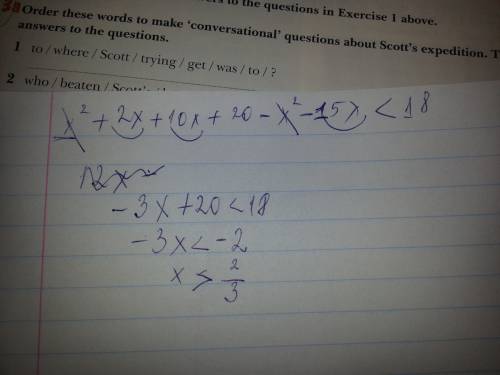 ers to the questions in Exercise 1 above.
Order these words to make ‘conversational’ questions about Scott’s expedition. T
answers to the questions.
1 to / where / Scott / trying / get / was / to / ?
2 who / beaten /
x² + 2x + 10x + 20 - x² - 15x < 18
12x -
- 3x + 20 < 18
- 3x < - 2
x > 2/3